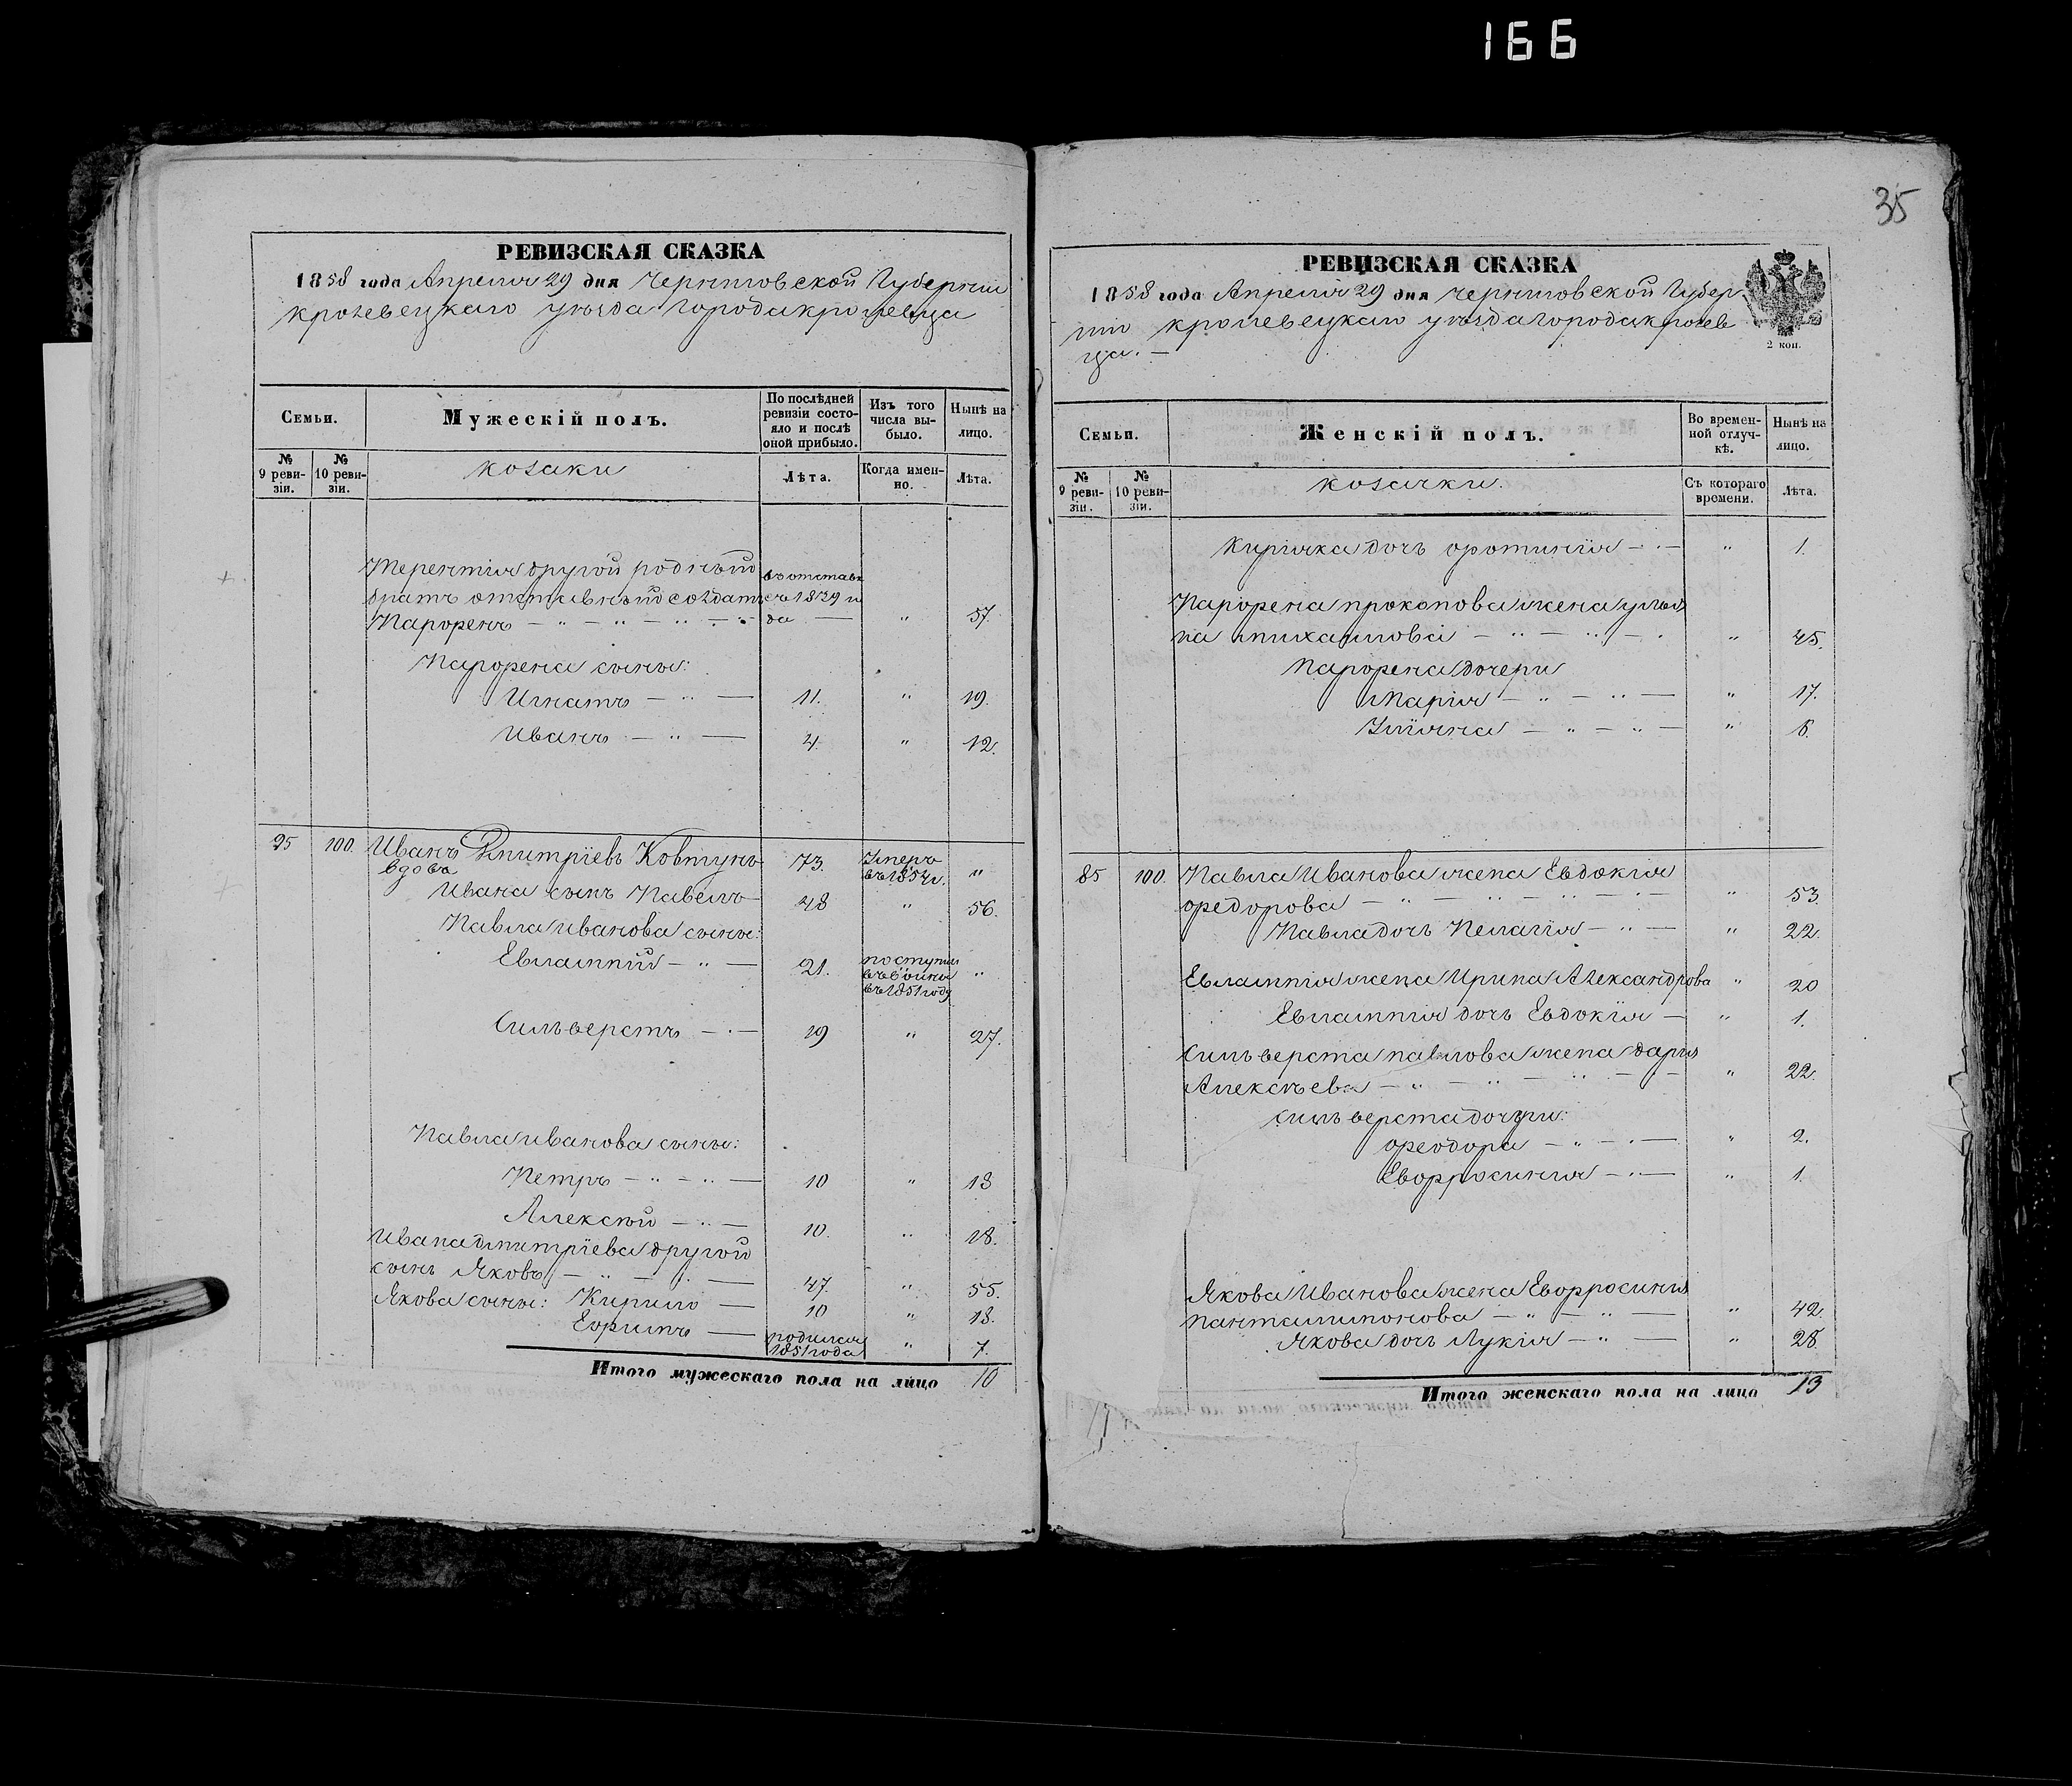 166
35
РЕВИЗСКАЯ СКАЗКА
1858 года Апреля 29 дня Черниговской Губернии
Кролевецкаго уѣзда города Кролевца
Семьи.
Мужескій полъ.
По послѣдней ревизіи состояло и послѣ оной прибыло.
Изъ того числа выбыло.
Нынѣ на лицо.
№ 9 ревизіи.
№ 10 ревизіи.
козаки
Лѣта.
Когда именно.
Лѣта.
Терентія другой родный въ отставк
братъ отставный солдатъ съ 1839 го
Парфенъ да " 57.
Парфена сыны:
Игнатъ 11. " 19.
Иванъ 4. " 12.
95 100. Иванъ Дмитріевъ Ковтунъ 73. Умеръ въ 1854 г. "
вдова
Ивана сынъ Павелъ 48 " 56.
Павла Иванова сыны:
Евлампій 21. поступил въ воины въ 1851 году "
Сильверстъ 19 " 27.
Павла Иванова сыны:
Петръ 10 " 18
Алексѣй 10. " 18.
Ивана Дмитріева другой
сынъ Яковъ 47. " 55.
Якова сыны: Кирило 10 " 18.
Ефимъ родился 1851 года " 7.
Итого мужескаго пола на лицо 10
РЕВИЗСКАЯ СКАЗКА
1858 года Апреля 29 дня Черниговской Губер
ніи Кролевецкаго уѣзда города Кролев
ца.
2 коп.
Семьи.
Женскій полъ.
Во временной отлучкѣ.
Нынѣ на лицо.
№ 9 ревизіи.
№ 10 ревизіи.
козачки.
Съ котораго времени.
Лѣта.
дочь Фотинія " 1.
Парфена Прокопова жена Улья
на Михаилова " 45.
Парфена дочери
Марія " 17.
Уліяна " 8.
85 100. Павла Иванова жена Евдокія
Федорова " 53.
Павла дочь Пелагія " 22.
Евлампія жена Ирина Александрова " 20
Евлампія дочь Евдокія " 1.
Сильверста Павлова жена Дарія
Алексѣева " 22.
Сильверста дочери:
Феодора " 2.
Евфросинія " 1.
Якова Иванова жена Евфросинія
Пантилимонова " 42.
Якова дочь Лукія " 28.
Итого женскаго пола на лицо 13